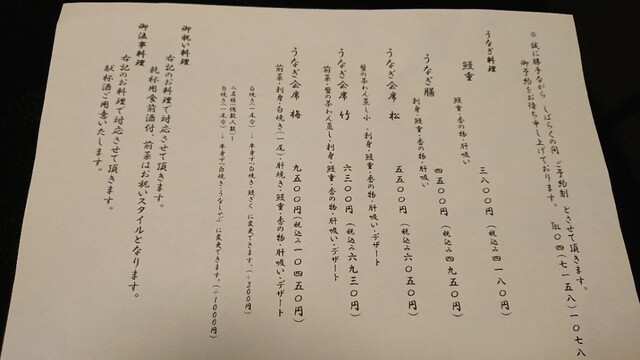 ※ 誠に勝手ながら しばらくの間 ご予約制 とさせて頂きます。
御予約をお待ち申し上げております。 ℡〇四(七一五八)一〇七八
うなぎ料理
鰻重 三八〇〇円(税込み四一八〇円)
鰻重・香の物・肝吸い
うなぎ膳 四五〇〇円(税込み四九五〇円)
刺身・鰻重・香の物・肝吸い
うなぎ会席 松 五五〇〇円(税込み六〇五〇円)
蟹の茶わん蒸し小・刺身・鰻重・香の物・肝吸い・デザート
うなぎ会席 竹 六三〇〇円(税込み六九三〇円)
前菜・蟹の茶わん蒸し・刺身・鰻重・香の物・肝吸い・デザート
うなぎ会席 梅 九五〇〇円(税込み一〇四五〇円)
前菜・刺身・白焼き(一尾)・肝焼き・鰻重・香の物・肝吸い・デザート
白焼き(一尾分)→ 半身ずつ(白焼き・鰻ざく に変更できます。(+300円)
二名様(偶数人数)~
白焼き(一尾分)→ 半身ずつ(白焼き・うなしゃぶ に変更できます。(+1000円)
御祝い料理
右記のお料理で対応させて頂きます。
乾杯用食前酒付、前菜はお祝いスタイルとなります。
御法事料理
右記のお料理で対応させて頂きます。
献杯酒ご用意いたします。